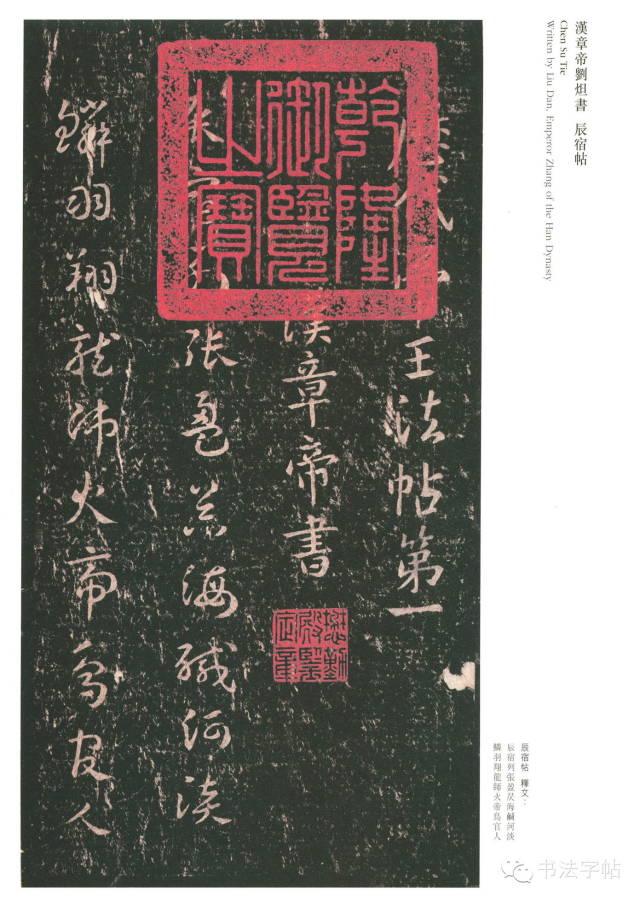 漢章帝劉炟書 辰宿帖
Chen Su Tie
Written by Liu Dan, Emperor Zhang of the Han Dynasty
乾隆
御覽
之寶
王法帖第一
漢章帝書
懋勤
殿鑒
定章
張盈昃海鹹河淡
鱗羽翔龍師火帝鳥官人
辰宿帖 釋文：
辰宿列張盈昃海鹹河淡
鱗羽翔龍師火帝鳥官人
书法字帖